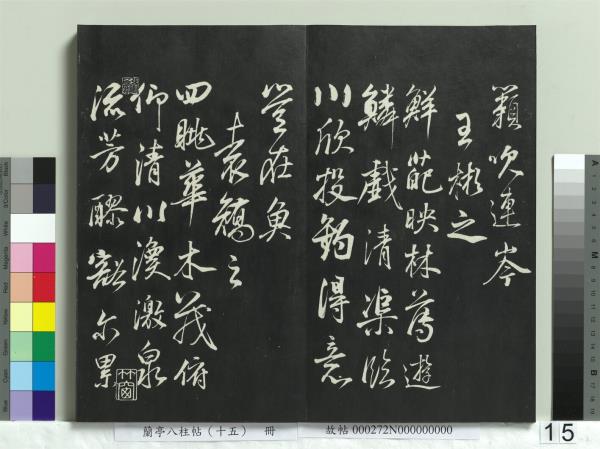 籟吹連岑
王彬之
鮮葩映林薄遊
鱗戲清渠臨
川欣投釣得意
豈在魚
袁矯之
四眺華木茂俯
仰清川渙激泉
流芳醪豁尔累
蘭亭八柱帖(十五) 冊
故帖 000272N000000000
15
Black
3/Color
White
Magenta
Red
Yellow
Green
Cyan
Blue